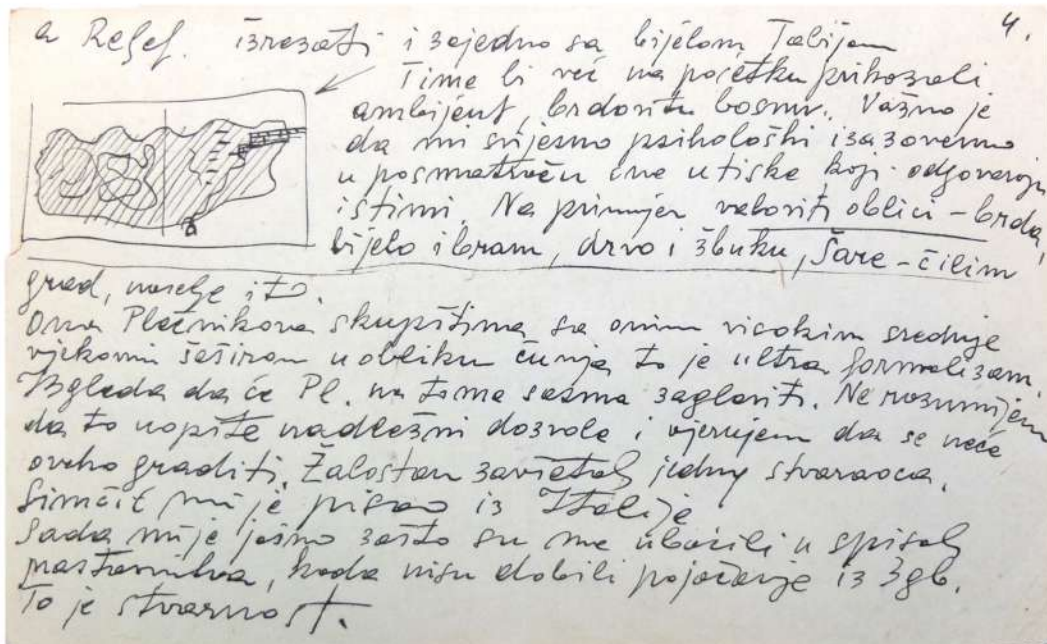 4.
a Reljef. izrezati i zajedno sa bijelom Tabijom
Time bi već na početku prikazali
ambijent, brdovitu bosnu. Važno je
da mi svjesno psihološki izazovemo
u posmatraču one utiske koji odgovaraju
istini. Na primjer valoviti oblici - brda,
bijelo i bram, drvo i žbuku, šare - ćilim
grad, naselje itd.
Ona Plečnikova skupština sa onim visokim srednje
vjekovni šeširom u obliku čunja to je ultra formalizam.
Izgleda da će Pl. na tome sasma zaglaviti. Ne razumijem
da to uopšte nadležni dozvole i vjerujem da se neće
ovako graditi. Žalostan završetak jednog stvaraoca.
Simčić mi je pisao iz Italije
Sada mi je jasno zašto su me ubacili u spisak
nastavnika, kada nisu dobili pojačanje iz Zgb.
To je stvarnost.